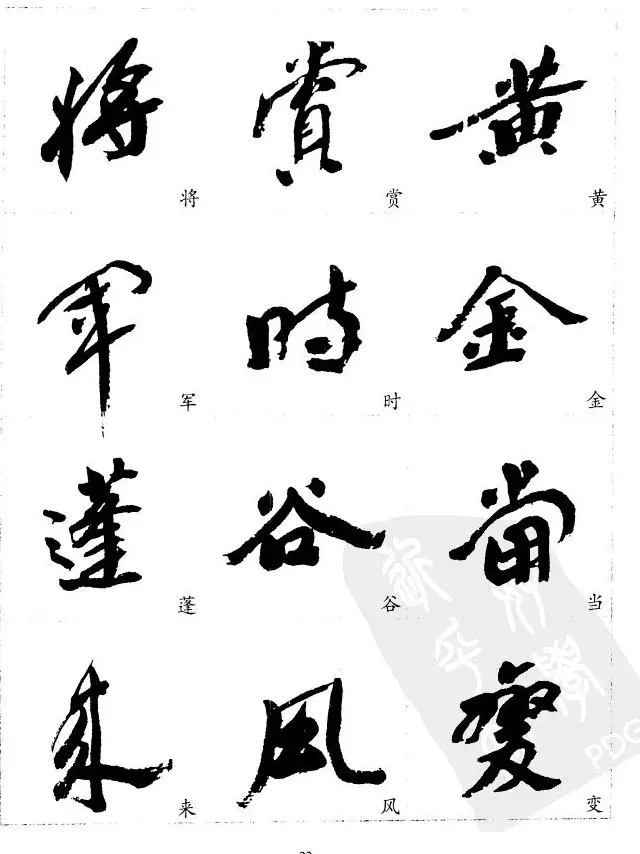 黄金當變
黄金当变
賞時谷風
赏时谷风
将軍蓬来
将军蓬来
PDG